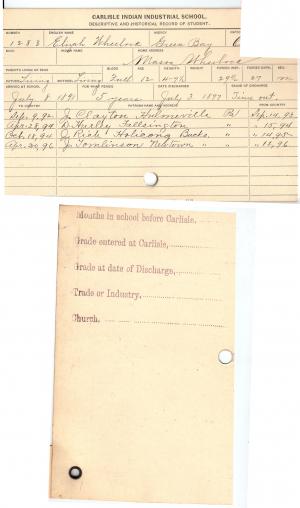 CARLISLE INDIAN INDUSTRIAL SCHOOL.
DESCRIPTIVE AND HISTORICAL RECORD OF STUDENT.
NUMBER ENGLISH NAME AGENCY
1283 Elijah Wheelock Green Bay
INDIAN NAME HOME ADDRESS
Mason Wheelock
PARENTS LIVING OR DEAD BLOOD AGE HEIGHT WEIGHT FORCED INSP. FORCED EXPR. SEX
FATHER Living MOTHER Living Full 12 4-7½ 27 m
ARRIVED AT SCHOOL FOR WHAT PERIOD DATE DISCHARGED CAUSE OF DISCHARGE
July 8 1891 5 years July 3 1897 Time out
TO COUNTRY PATRONS NAME AND ADDRESS FROM COUNTRY
Sep. 9, 92 J. Clayton Hulmeville Pa Sep. 14, 93
Apr. 28, 94 D. Hurley Fallsington " " 15, 94
18, 94 J. Rich Holicong Bucks " " 14, 95
Apr. 20, 96 J. Tomlinson Newtown " " 13, 96
Months in school before Carlisle,
Grade entered at Carlisle,
Grade at date of Discharge,
Trade or Industry,
Church.